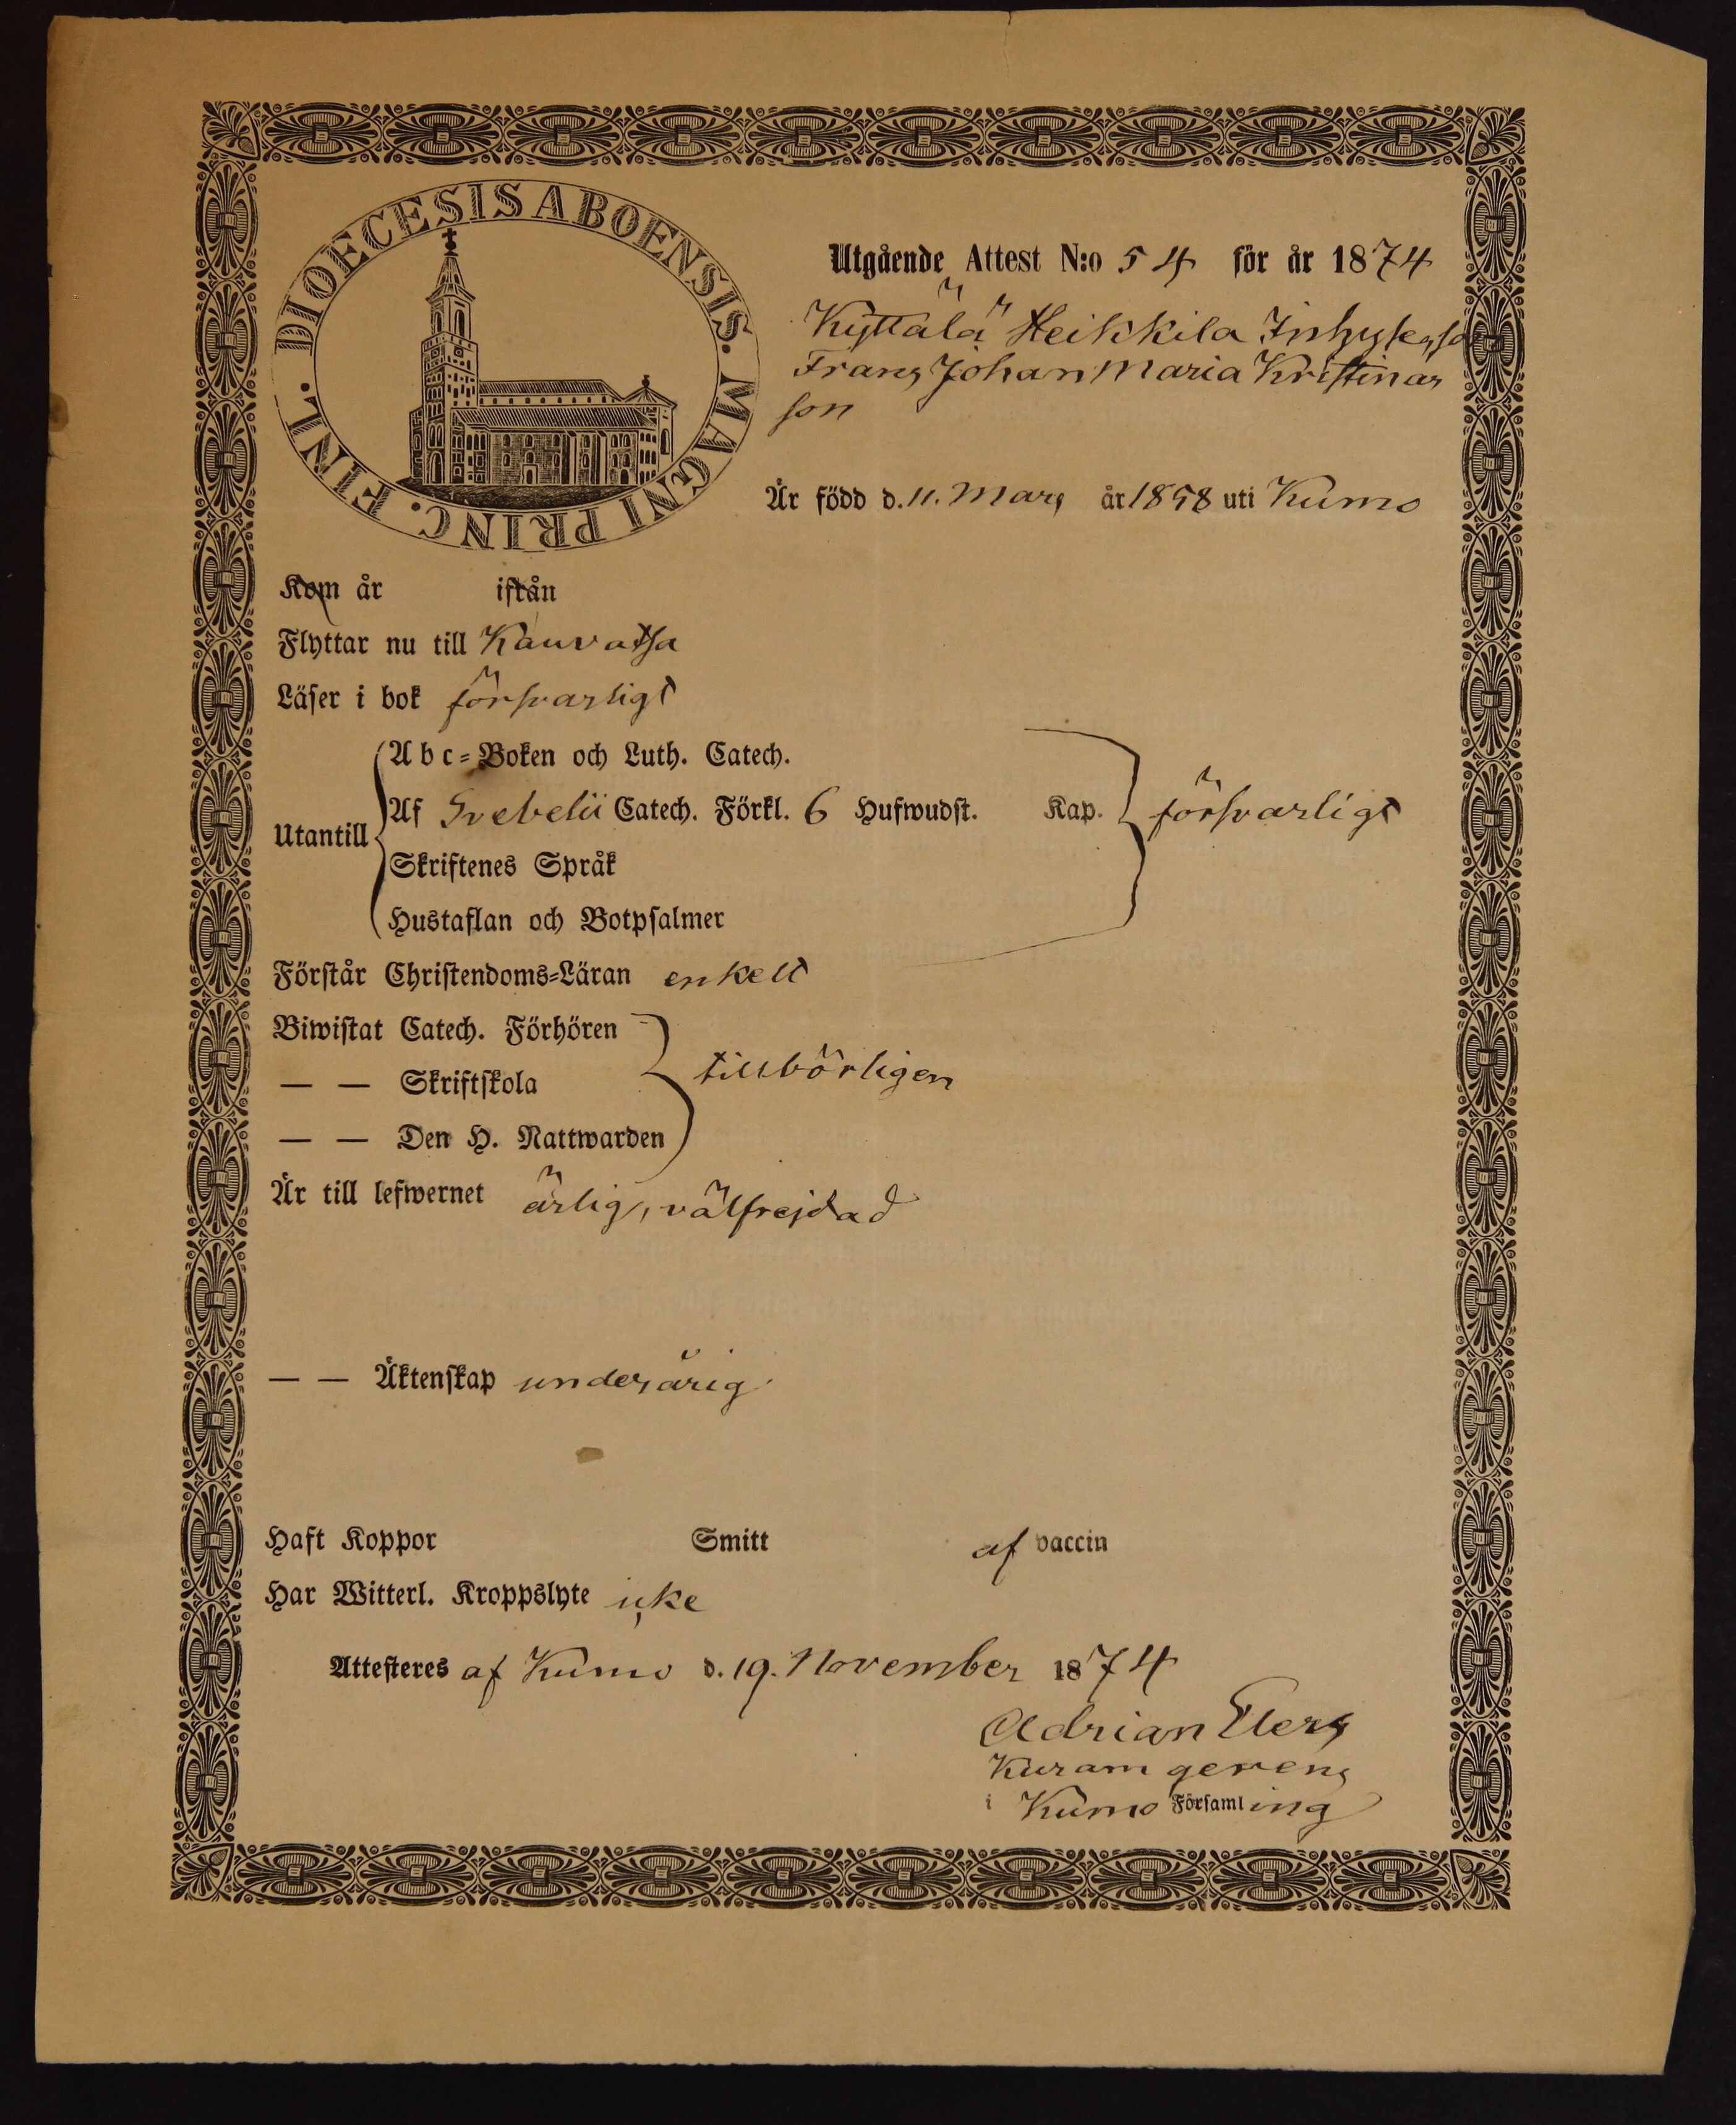 DIOECESIS ABOENSIS. MAGNI PRINC. FINL.
Utgående Attest N:o 54 för år 1874
Kyttälä Heikkilä Inhyseson
Frans Johan Maria Kristinas
son
Är född d. 11. Mars år 1858 uti Kumo
Kom år ifrån
Flyttar nu till Kauvatsa
Läser i bok försvarligt
Abc-Boken och Luth. Catech.
Utantill Af Svebelii Catech. Förkl. 6 Hufwudst. Kap. försvarligt
Skriftenes Språk
Hustaflan och Botpsalmer
Förstår Christendoms-Läran enkelt
Biwistat Catech. Förhören
— — Skriftskola tillbörligen
— — Den H. Nattwarden
Är till lefwernet ärlig, välfrejdad
— — Äktenskap underårig
Haft Koppor Smitt af vaccin
Har Witterl. Kroppslyte icke
Attesteres af Kumo d. 19. November 1874
Adrian
Kuram gerens
i Kumo Församling